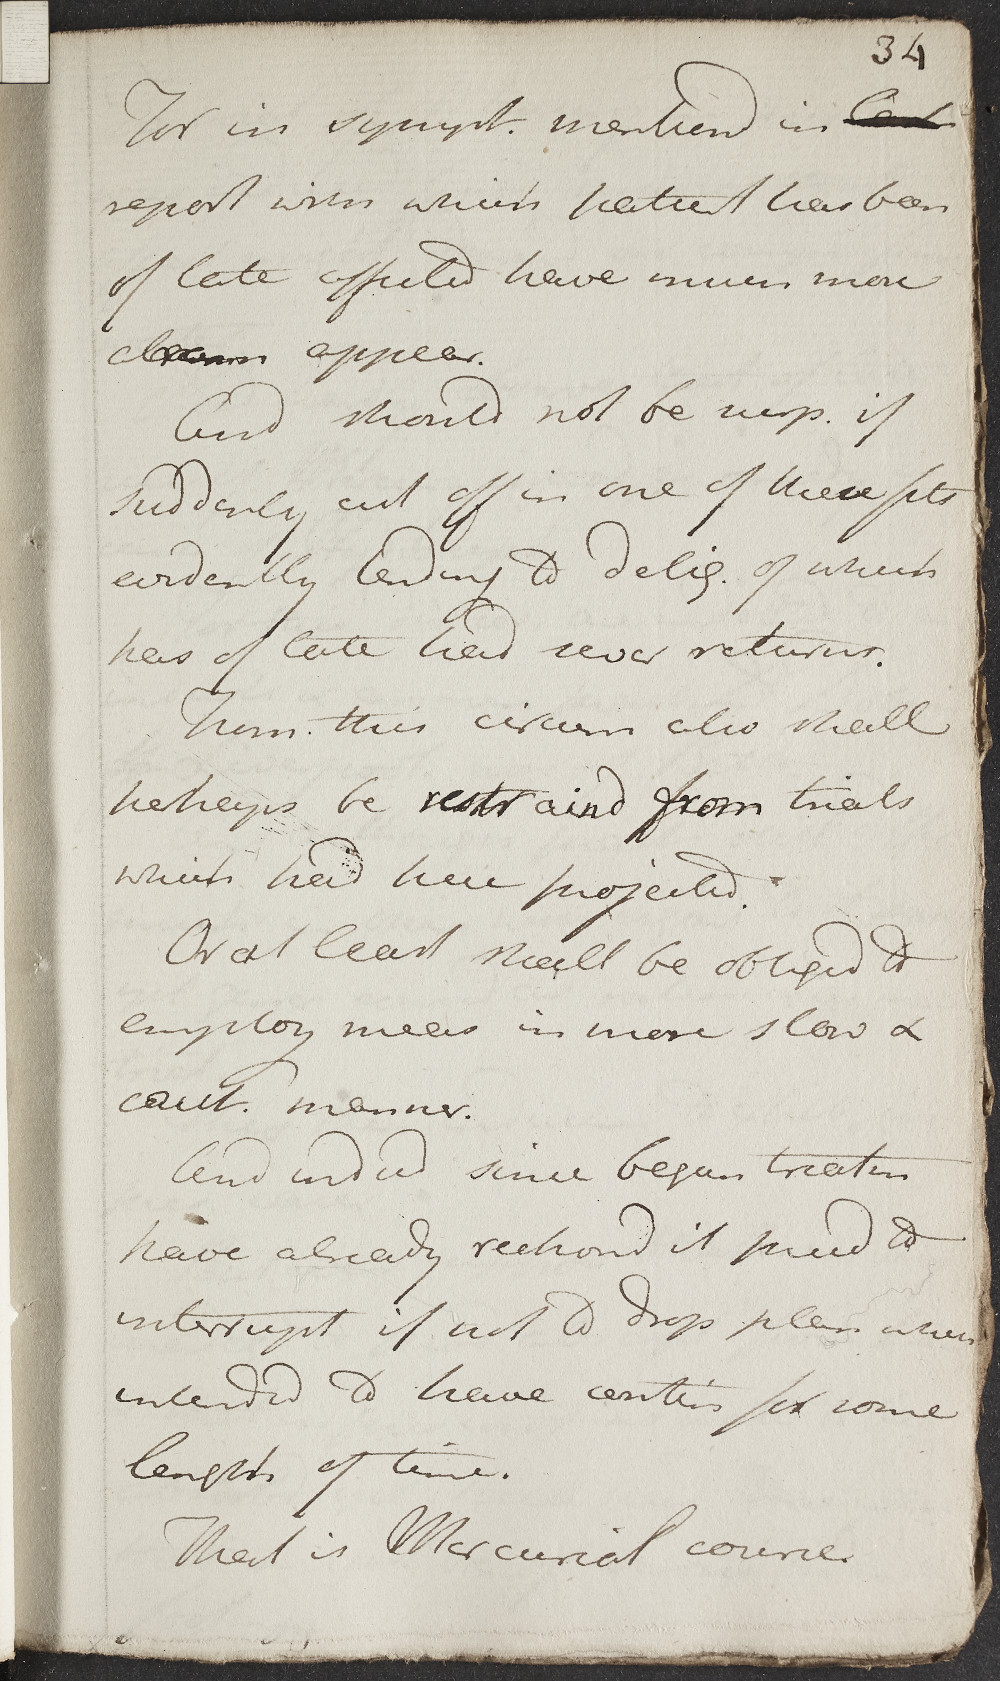 34
For in sympt. mentiend in
report with which patient has been
of late affected have much more
appear.
And should not be surp. if
suddenly cut off in one of these fits
evidently tending to deliq. of which
has of late had sever returns.
From this circum also shall
perhaps be restraind from trials
which had here projected.
Or at least shall be obliged to
employ meas in more slow &
caut. manner.
And indeed since began treatm
have already reckond it prud to
interrupt if not to drop plan when
intended to have contin for some
length of time.
That is Mercurial course.